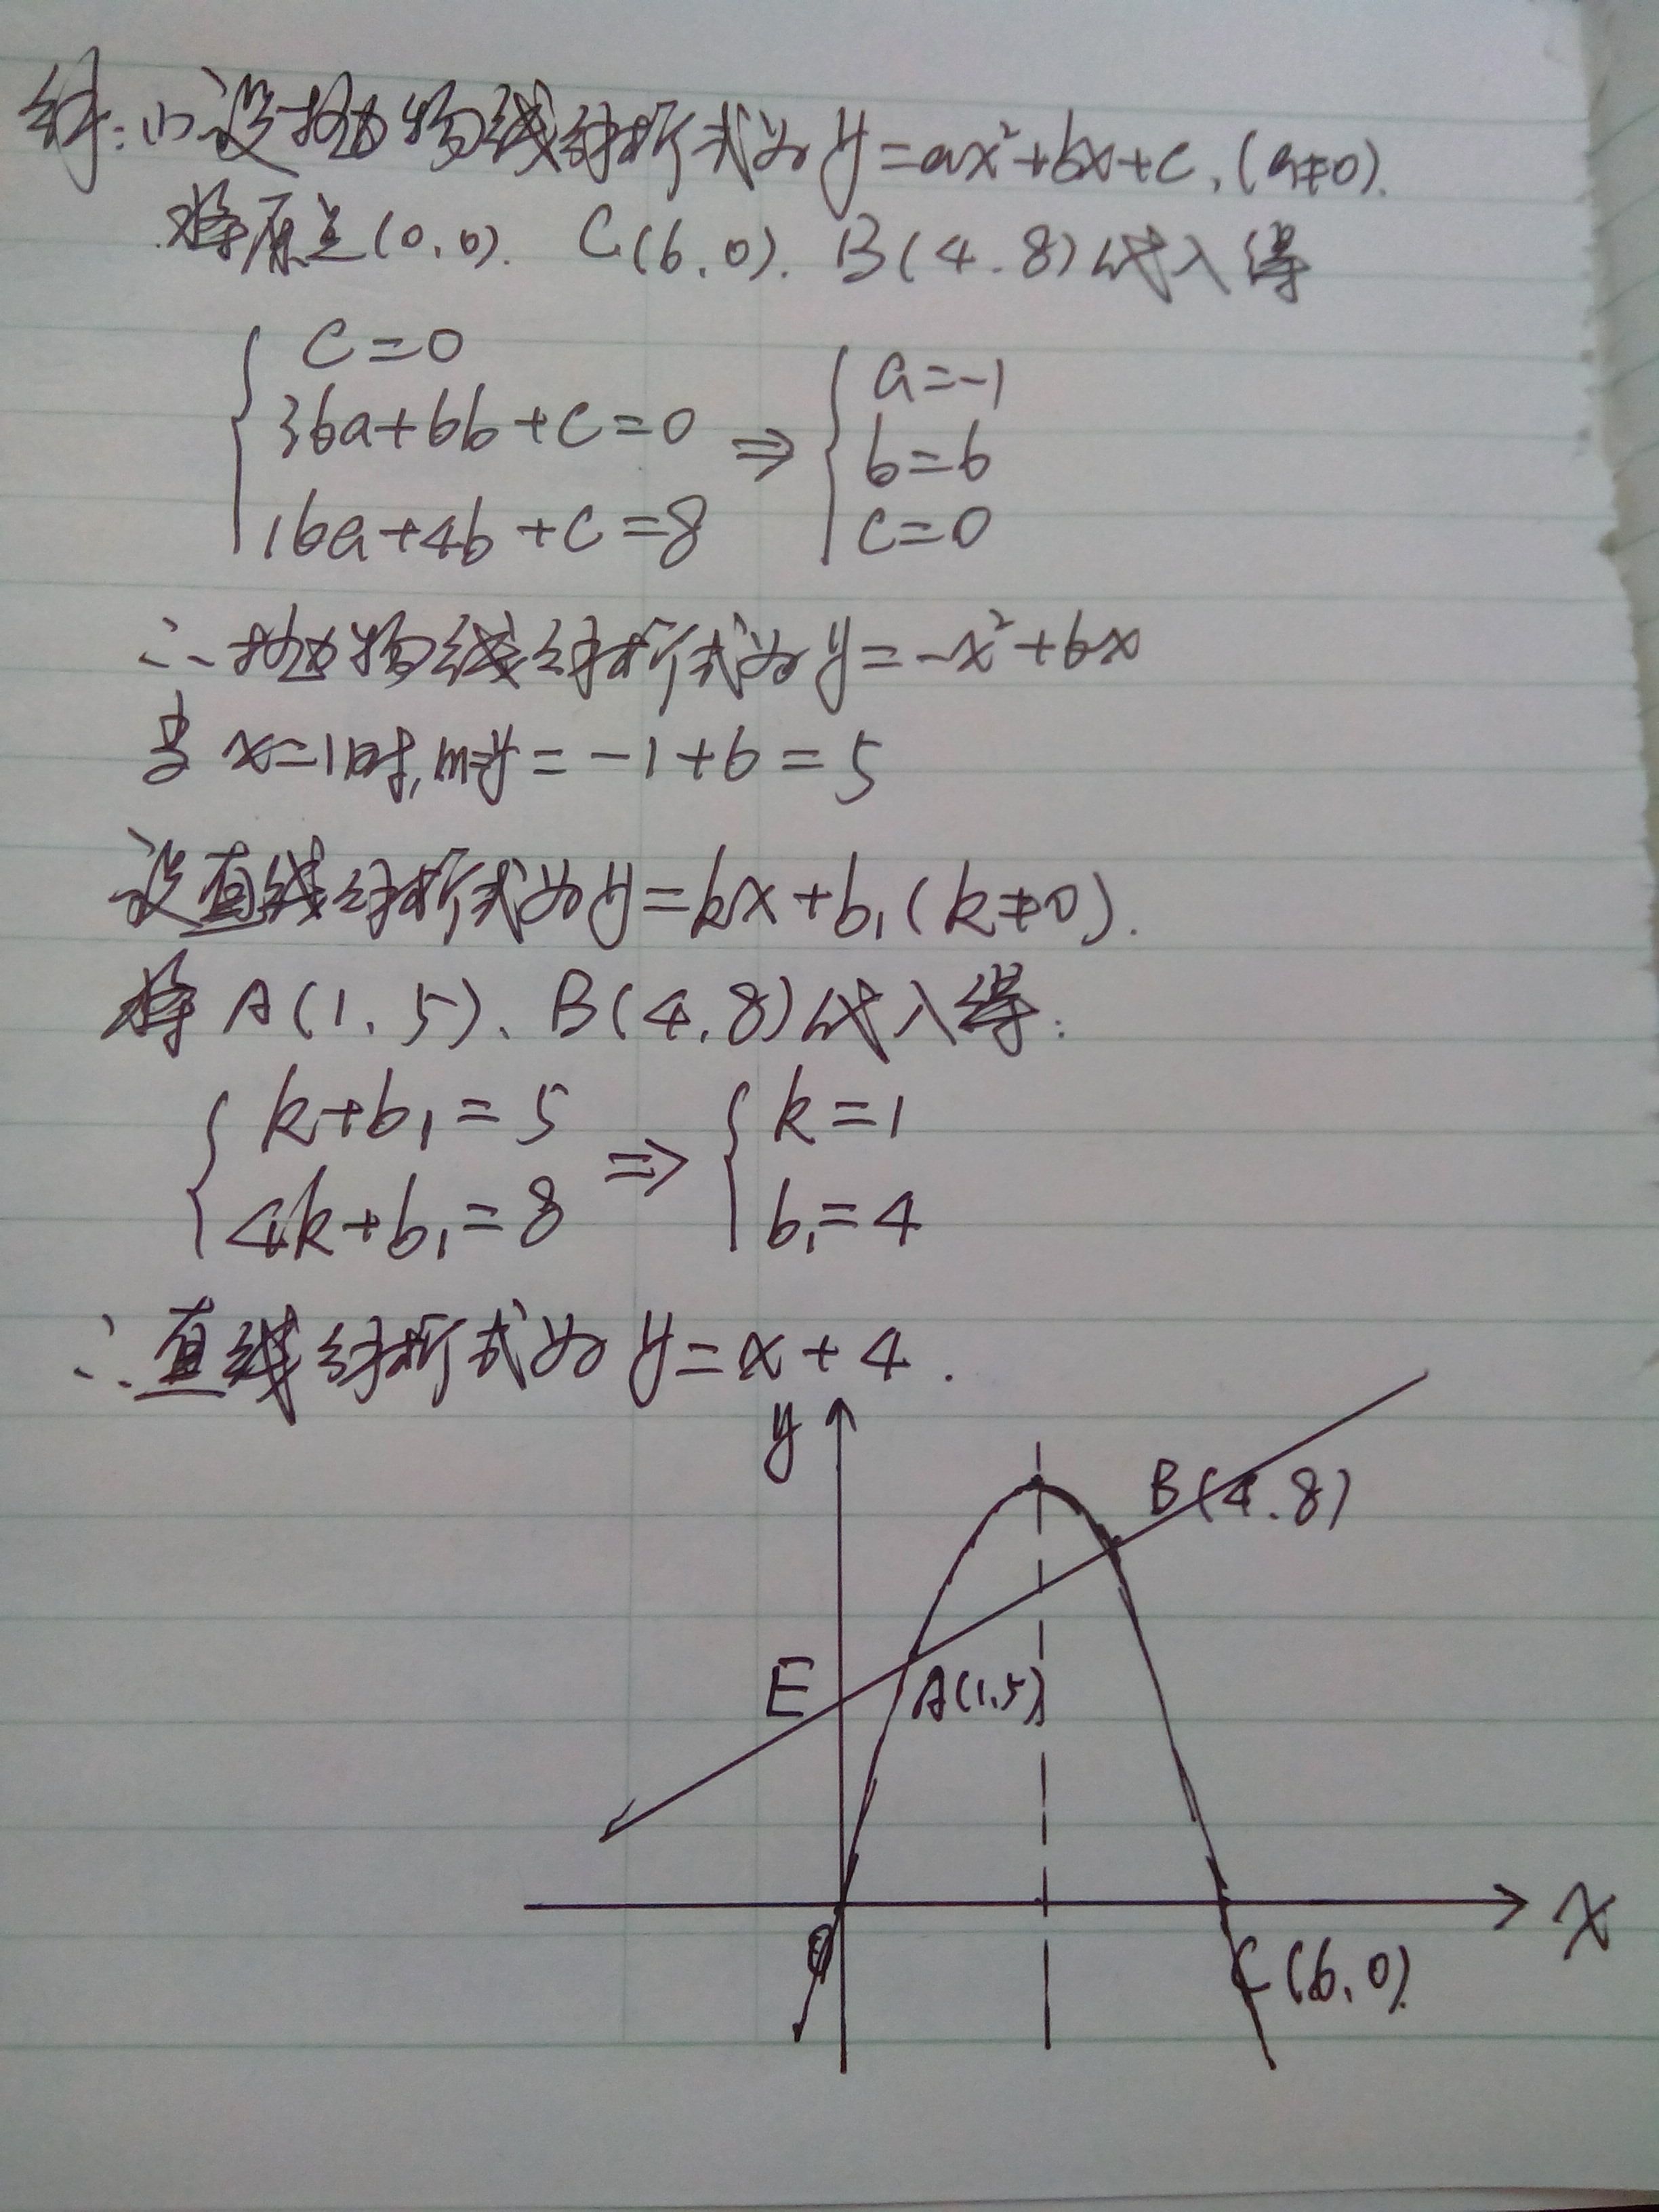 解:(1)设抛物线解析式为y=ax²+bx+c,(a≠0).
将原点(0,0). C(6,0). B(4.8)代入得
{ c=0
36a+6b+c=0
16a+4b+c=8
⇒ { a=-1
b=6
c=0
∴抛物线解析式为y=-x²+6x
当x=1时,m=y=-1+6=5
设直线解析式为y=kx+b₁(k≠0).
将A(1.5)、B(4.8)代入得:
{ k+b₁=5
4k+b₁=8
⇒ { k=1
b₁=4
∴直线解析式为y=x+4.
y
B(4.8)
E
A(1.5)
x
O
C(6.0)